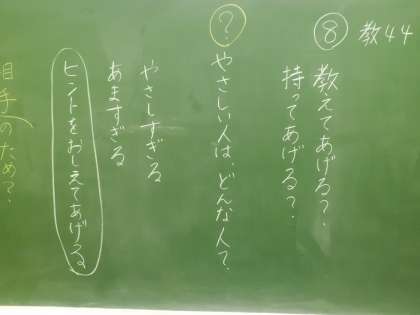 ⑧ 教44
教えてあげる?
持ってあげる?
? やさしい人は、どんな人?
やさしすぎる
あますぎる
ヒントをおしえてあげる
相手のため?